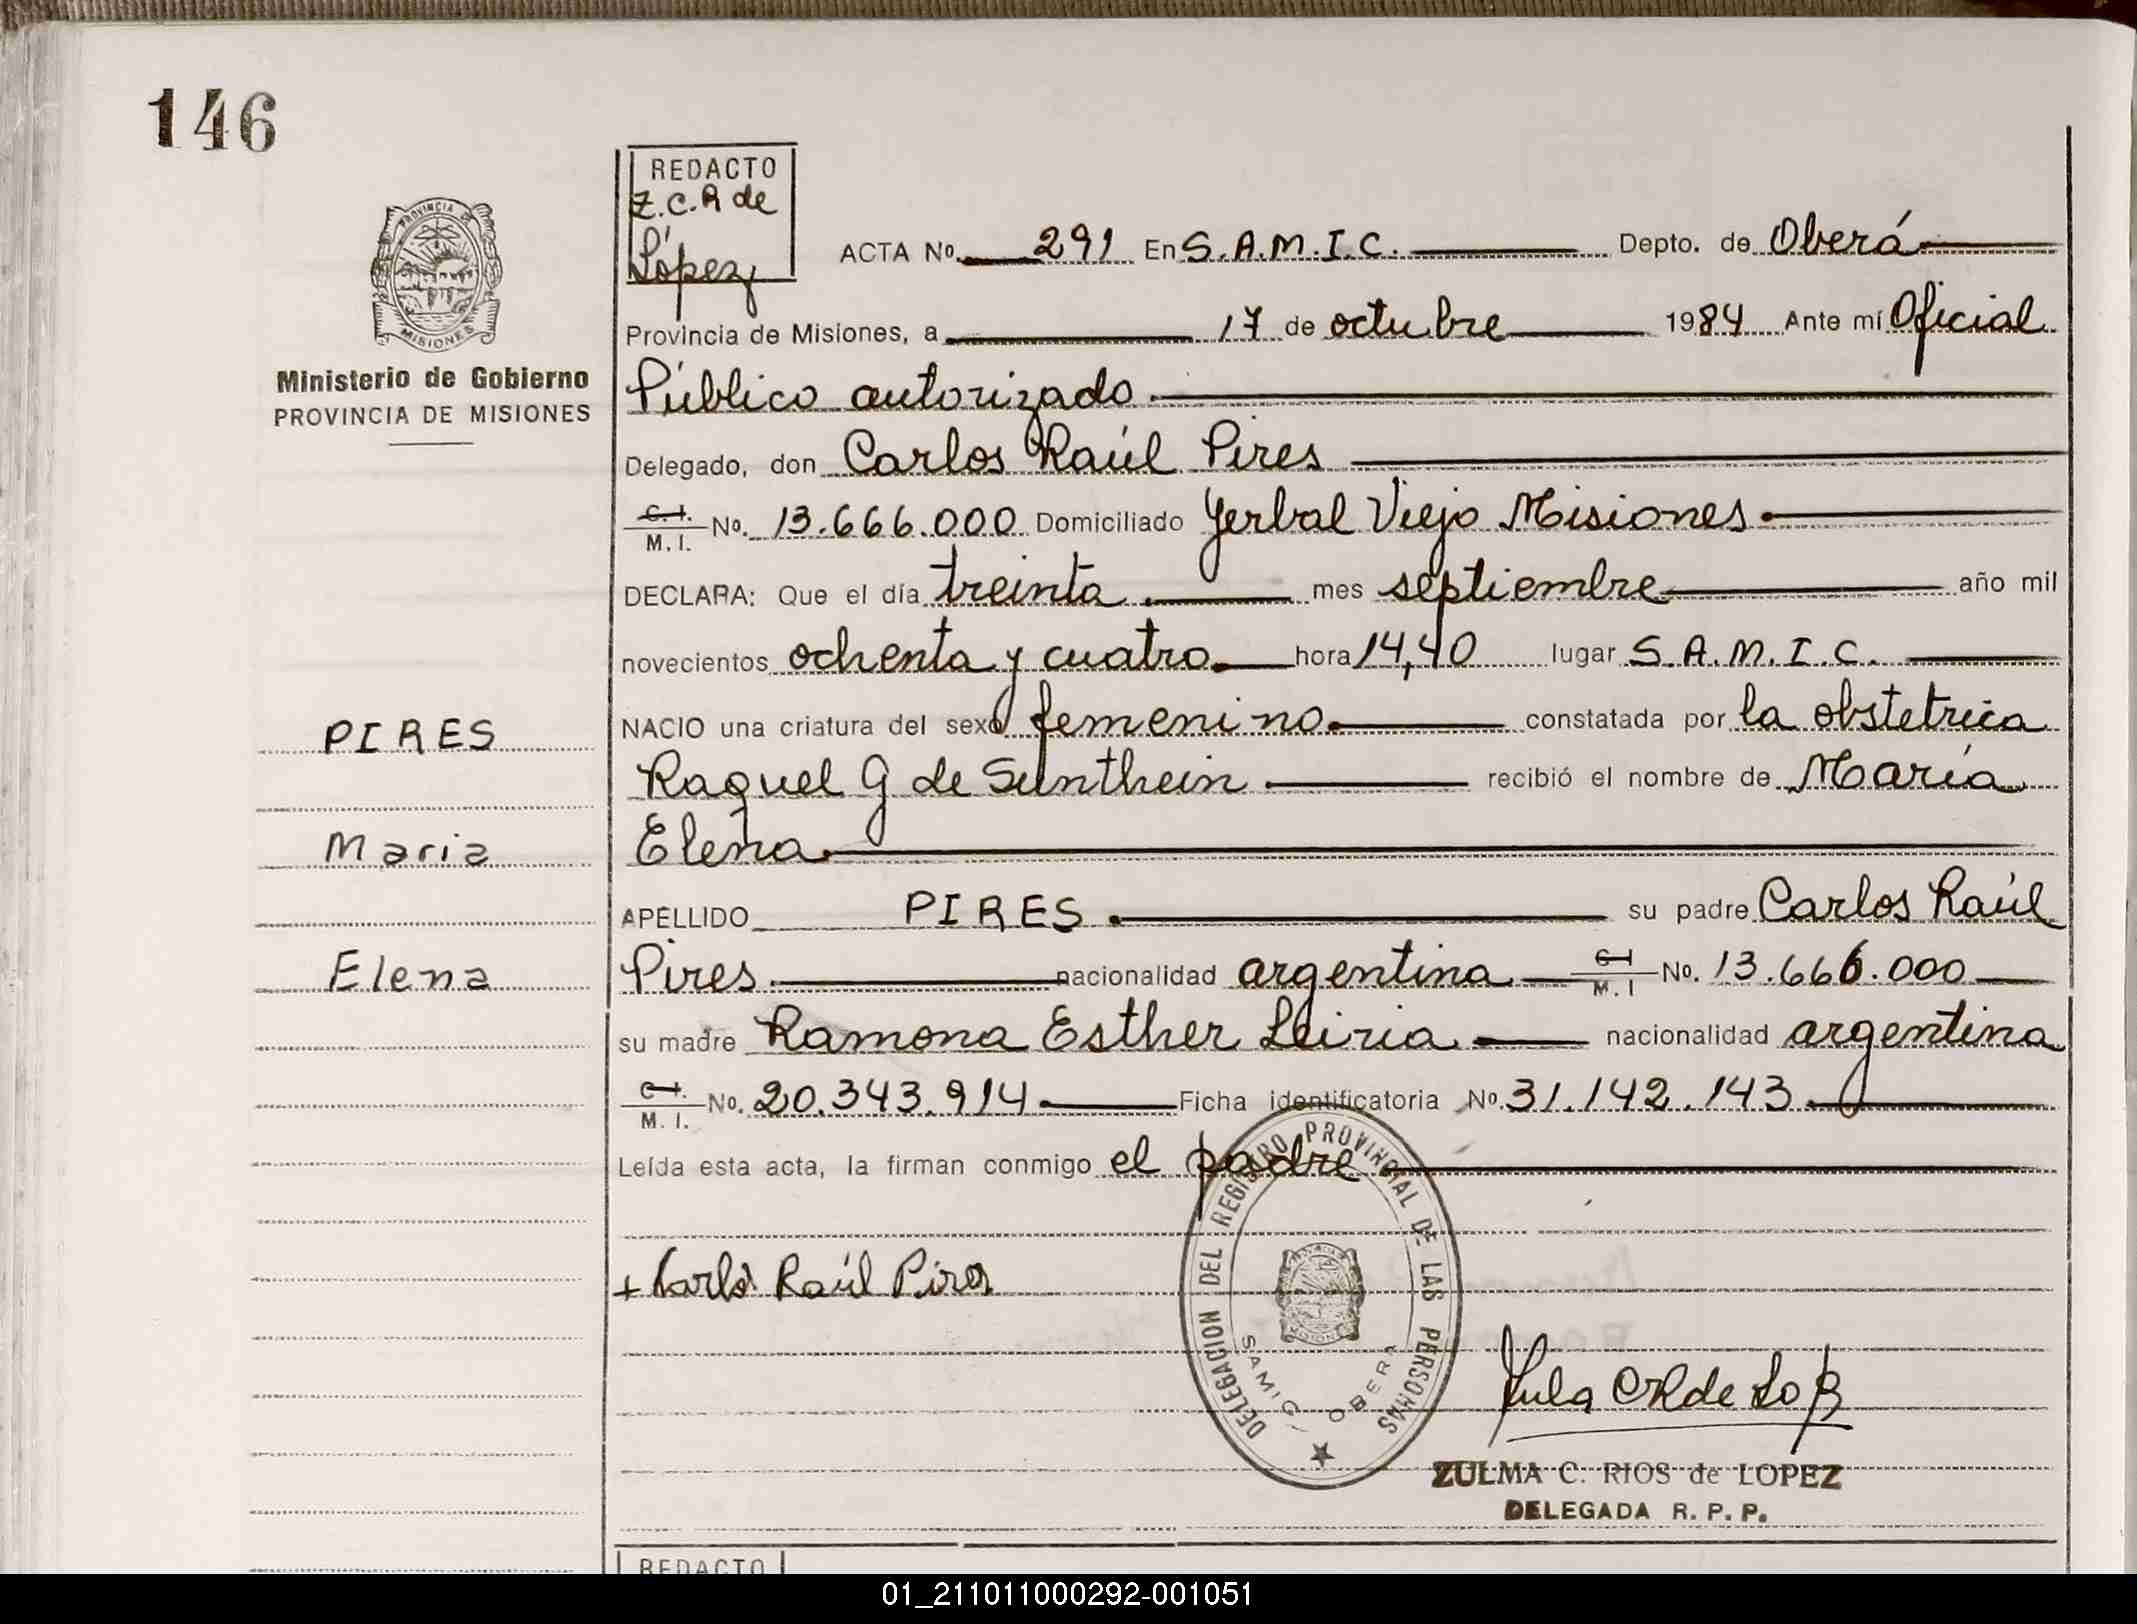 146
PROVINCIA DE
MISIONES
Ministerio de Gobierno
PROVINCIA DE MISIONES
REDACTO
Z.C.R de
López
ACTA No. 291 En S.A.M.I.C. Depto. de Oberá
Provincia de Misiones, a 17 de octubre 1984 Ante mí Oficial
Público autorizado
Delegado, don Carlos Raúl Pires
C.I. M.I. No. 13.666.000 Domiciliado Yerbal Viejo Misiones
DECLARA: Que el día treinta mes septiembre año mil
novecientos ochenta y cuatro hora 14,40 lugar S.A.M.I.C.
NACIO una criatura del sexo femenino constatada por la obstetrica
Raquel G de Sunthein recibió el nombre de María
Elena
APELLIDO PIRES su padre Carlos Raúl
Pires nacionalidad argentina C.I M.I No. 13.666.000
su madre Ramona Esther Leiria nacionalidad argentina
C.I. M.I. No. 20.343.914 Ficha identificatoria No. 31.142.143
Leída esta acta, la firman conmigo el padre
PIRES
Maria
Elena
+ Carlos Raúl Pires
DELEGACION DEL REGISTRO PROVINCIAL DE LAS PERSONAS
SAMIC OBERA
ZULMA C. RIOS de LOPEZ
DELEGADA R. P. P.
REDACTO
01_211011000292-001051